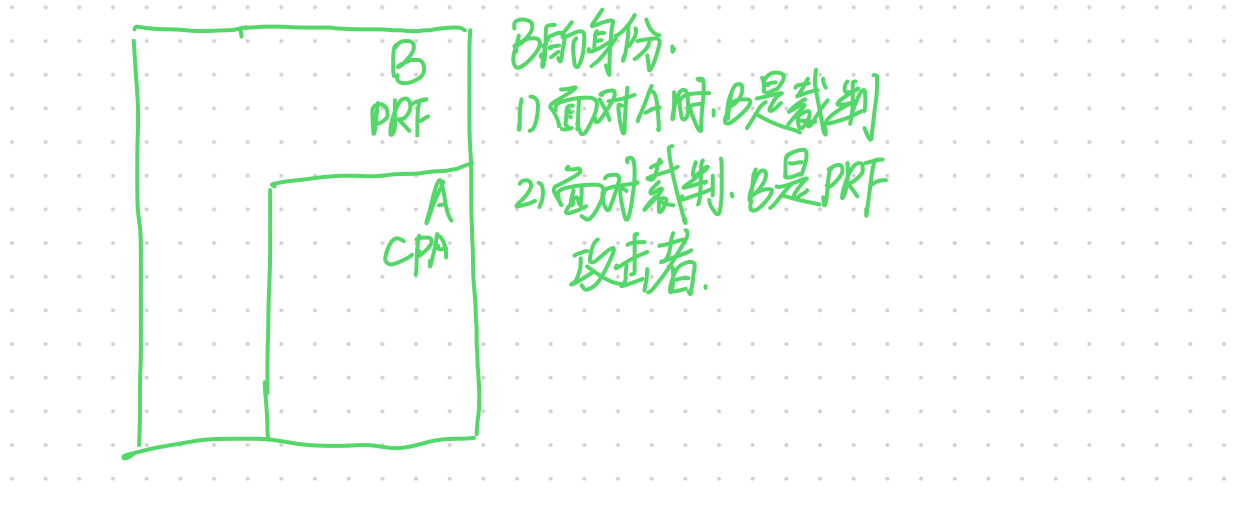 B
PRF
A
CPA
B的身份.
1) 面对A时.B是裁判
2) 面对裁判.B是PRF
攻击者.